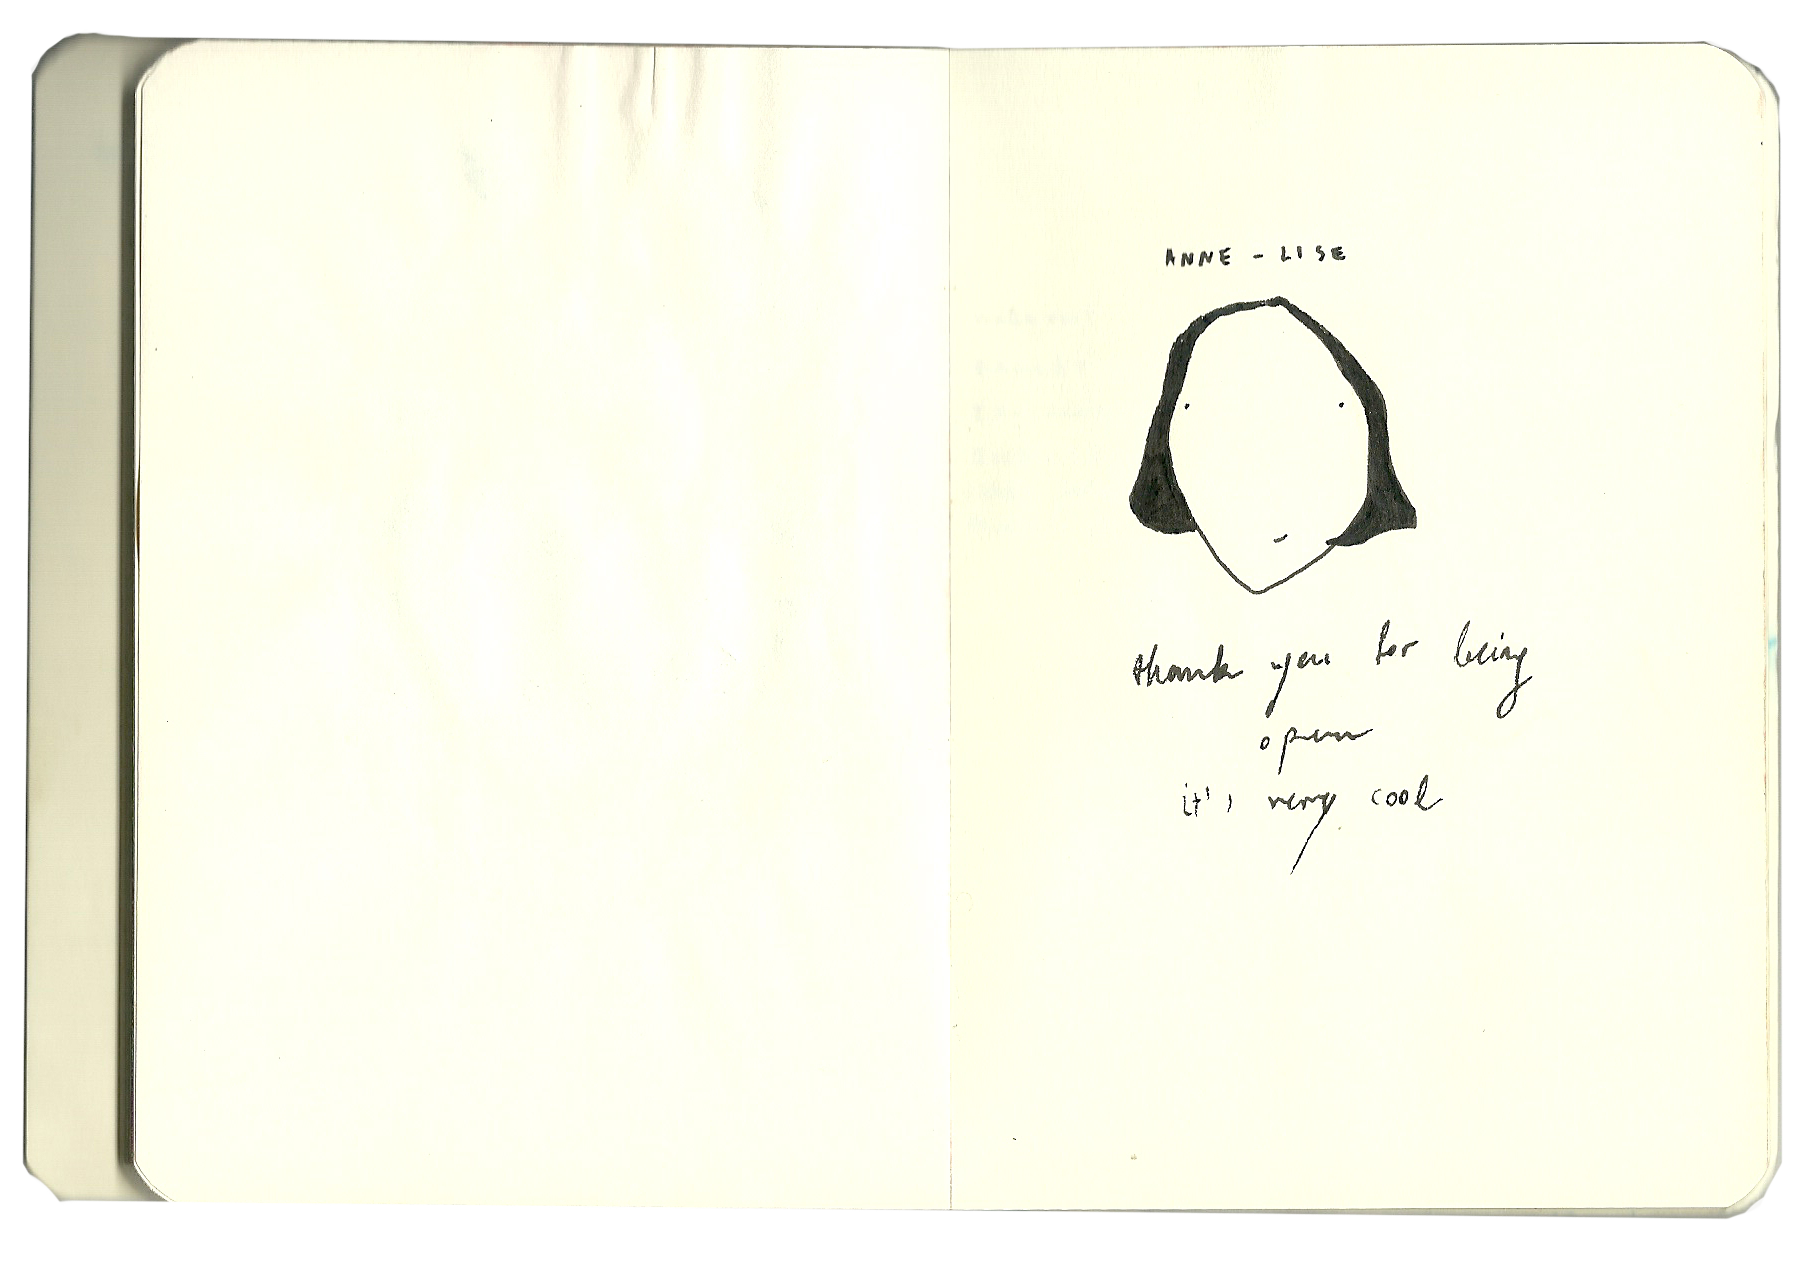 ANNE - LISE
thank you for being
open
it's very cool